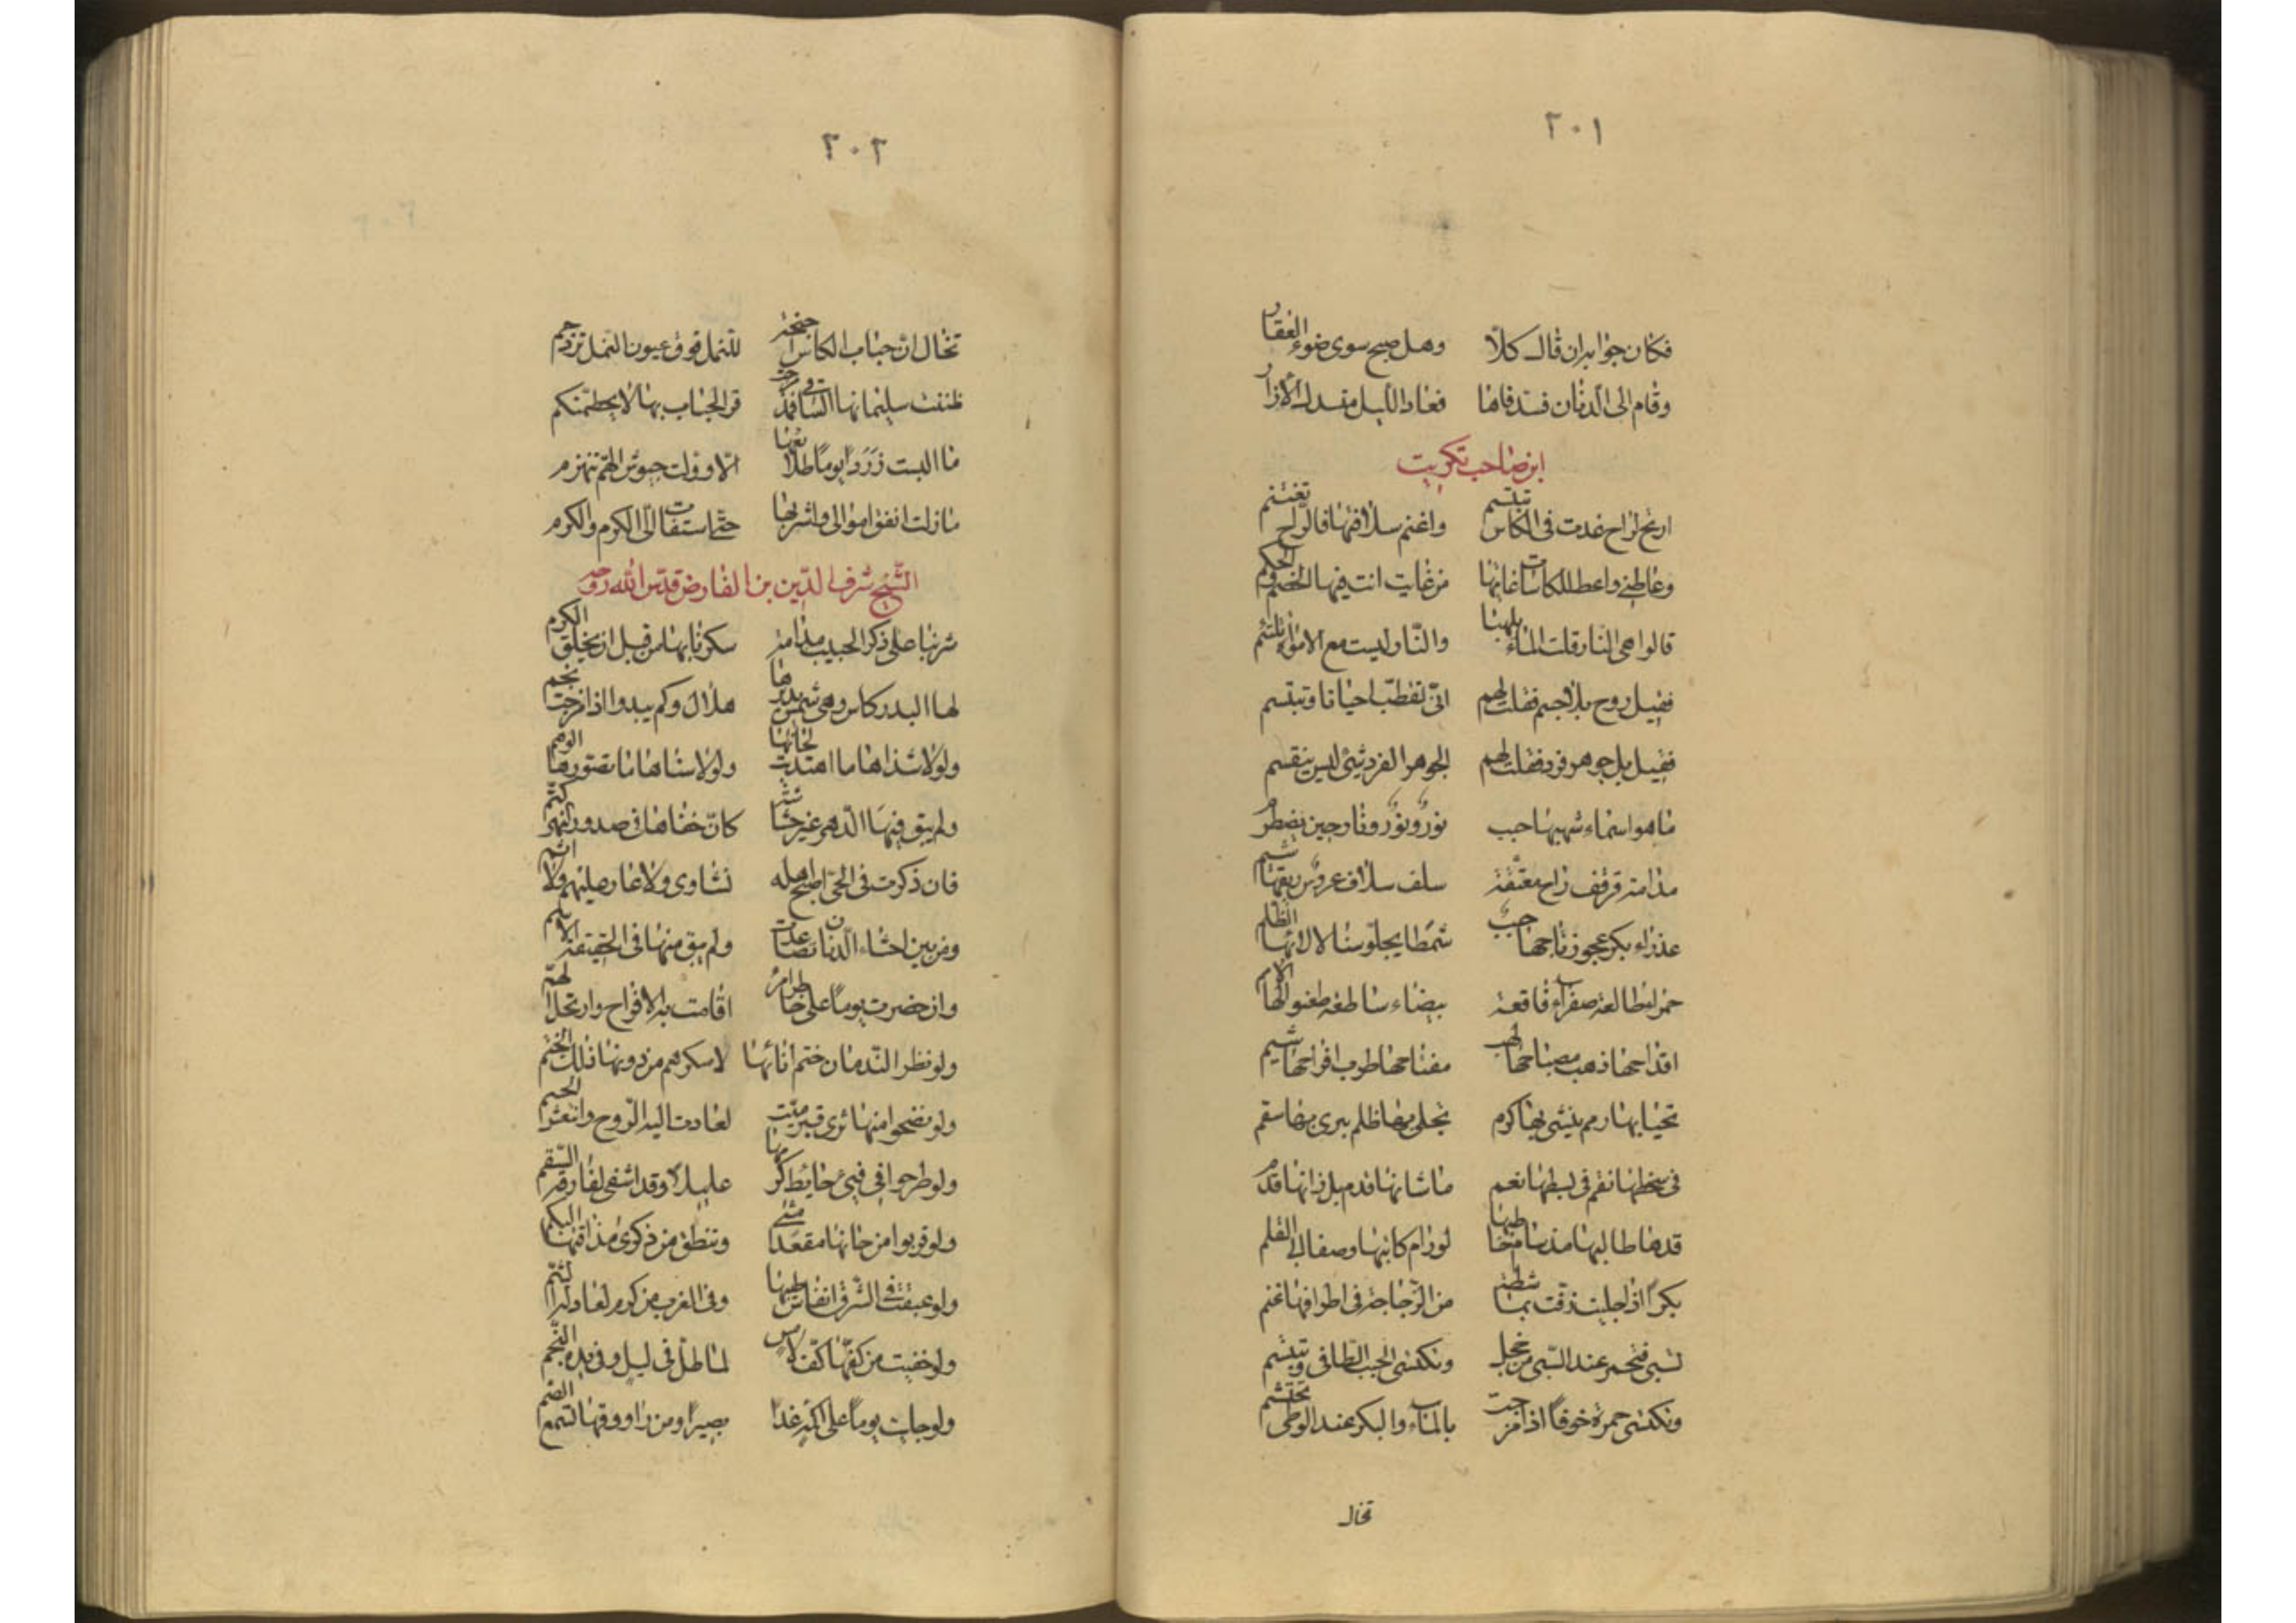 ٢٠١
فكان جوابه ان قال كلا وهل صبح سوى ضوء العقار
وقام الى الدنان فسد فاها فعاد الليل منسدل الازار
ابن صاحب تكريت
ارتح لراح غدت فى الكاس تبتسم واغنم سلافتها فالراح تغتنم
وعاطنى واعط للكاسات غايتها من غايت انت فيها الخصم والحكم
قالوا هى النار قلت الماء يلهبها والنار ليست مع الامواه تلتئم
فقيل روح بلا جسم فقلت لهم انى تقطب احيانا وتبتسم
فقيل بل جوهر فرد فقلت لهم الجوهر الفرد شئ ليس ينقسم
ما هو اسماء شهيها حبب نور ونور ونار حين تضطرم
مدامة قرقف راح معتقة سلف سلاف عروس
عذراء بكر عجوز تاجها حبب شمطا يجلو سنا لالائها الظلم
خمر صفراء فاقعة بيضاء ساطعة
اقداحها ذهب مصباحها لهب مفتاحها طرب افراحها شيم
تحيا بها رمم ينشى بها كرم تجلى بها ظلم يبرى بها سقم
فى سخطها نقم فى بسطها نعم ما شانها قدم بل زانها قدم
قدها طالبها لو رام كاتبها وصفا لها القلم
بكرا اذا جليت زفت بماشطة من الزجاجة فى اطوافها غنم
تسبى فتخمر عند السبى من خجل وتكتسى الحبب الطافى وتبتسم
وتكتسى حمرة خوفا اذا مزجت بالماء والبكر عند الوطى تحتشم
تخال
٢٠٢
تخال ان حباب الكاس جنحه للنمل فوق عيون النمل تزدحم
ظننت سليمانها الساقى فمذ مزجت قر الحباب بها لا يحطمنكم
ما البست زردا يوما طلايعها الا وولت جيوش الهم تنهزم
ما زلت انفق اموالى واشربها حتى استقالت الى الكرم والكرم
الشيخ شرف الدين بن الفارض قدس الله روحه
شربنا على ذكر الحبيب مدامة سكرنا بها من قبل ان يخلق الكرم
لها البدر كاس وهى شمس يديرها هلال وكم يبدوا اذا مزجت نجم
ولولا شذاها ما اهتديت لحانها ولولا سناها ما تصورها الوهم
ولم يبق فيها الدهر غير حشاشة كان خفاها فى صدور النهى كتم
فان ذكرت فى الحى اصبح اهله نشاوى ولا عار عليهم ولا اثم
ومن بين احشاء الدنان تصاعدت ولم يبق منها فى الحقيقة الا اسم
وان خضرت يوما على خاطر امرء اقامت به الافراح وارتحل الهم
ولو نظر الندمان ختم انائها لاسكرهم من دونها ذلك الختم
ولو نضحوا منها ثرى قبر ميت لعادت اليه الروح وانتعش الجسم
ولو طرحوا فى فئ حائط كرمها عليلا وقد اشفى لفارقه السقم
ولو قربوا من حانها مقعدا مشى وتنطق من ذكرى مذاقتها البكم
ولو عبقت فى الشرق انفاس طيبها وفى الغرب مزكوم لعاد له الشم
ولو خضبت من كفها كف لامس لما ظل فى ليل وفى يده النجم
ولو جليت يوما على اكمه غدا بصيرا ومن راووقها تسمع الصم